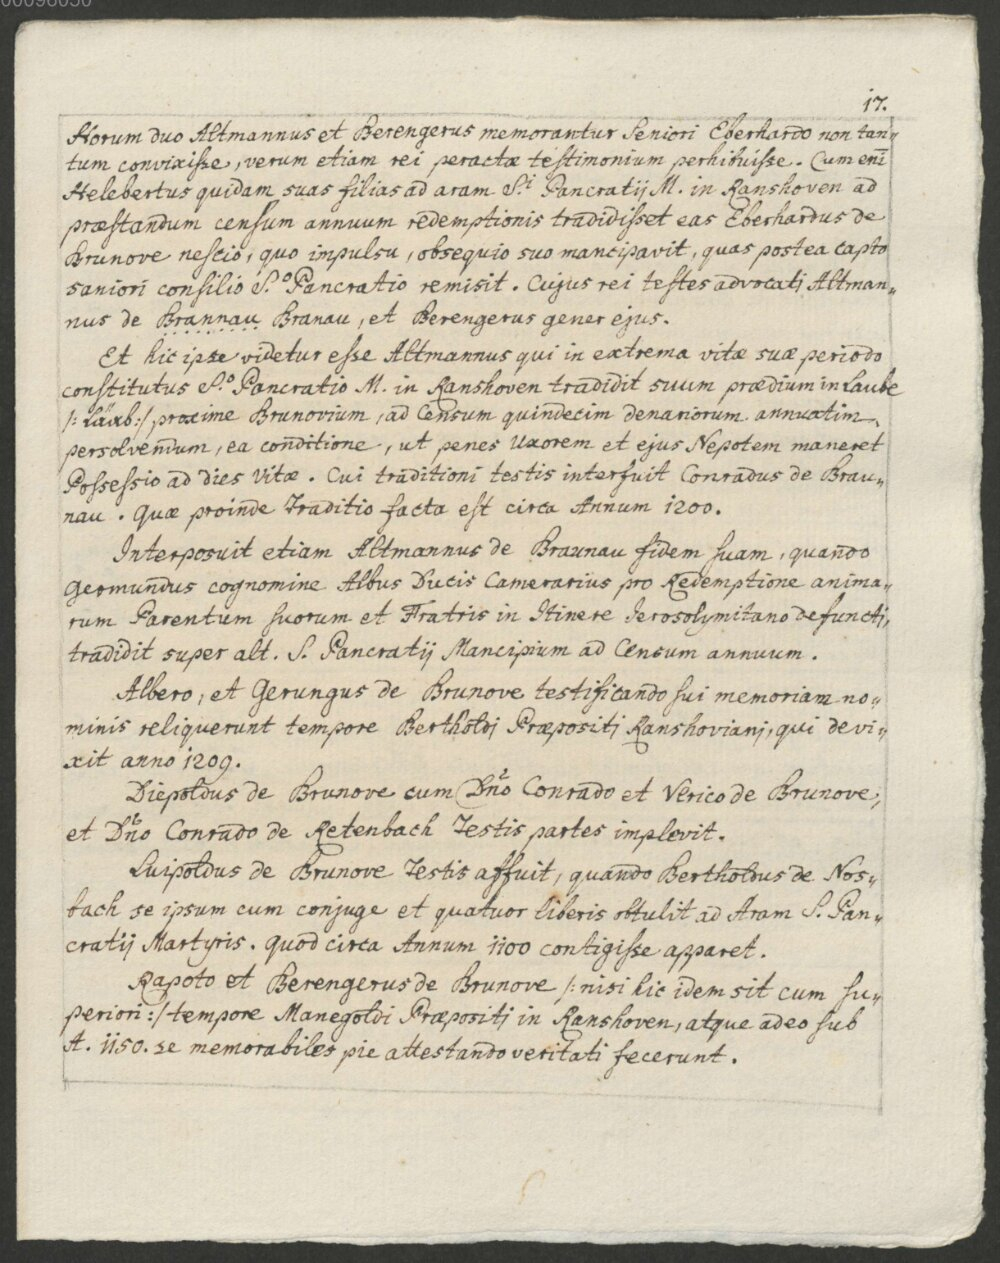 00096050
17.
Horum duo Altmannus et Berengerus memorantur Seniori Eberhardo non tan„
tum convixisse, verum etiam rei peractæ testimonium perhibuisse. Cum eni̅
Helebertus quidam suas filias ad aram S.i Pancratij M. in Ranshoven ad
præstandum censum annuum redemptionis tradidisset eas Eberhardus de
Brunove nescio, quo impulsu, obsequio suo mancipavit, quas postea capto
saniori consilio S.o Pancratio remisit. Cujus rei testes advocati Altman„
nus de Brannau Branau, et Berengerus gener ejus.
Et hic ipse videtur esse Altmannus qui in extrema vitæ suæ periodo
constitutus S.o Pancratio M. in Ranshoven tradidit suum prædium in Laube
/: Läxb :/ proxime Brunovium, ad Censum quindecim denariorum annuatim
persolvendum, ea conditione, ut penes Uxorem et ejus Nepotem maneret
Possessio ad dies Vitæ. Cui traditioni testis interfuit Conradus de Brau„
nau. Quæ proinde Traditio facta est circa Annum 1200.
Interposuit etiam Altmannus de Braunau fidem suam, quando
Germundus cognomine Albus Ducis Camerarius pro Redemptione anima„
rum Parentum suorum et Fratris in Itinere Ierosolymitano defuncti,
tradidit super alt. S. Pancratij Mancipium ad Censum annuum.
Albero, et Gerungus de Brunove testificando sui memoriam no„
minis reliquerunt tempore Bertholdj Præpositj Ranshovianj, qui devi„
xit anno 1209.
Diepoldus de Brunove cum Dn̅o Conrado et Verico de Brunove,
et Dn̅o Conrado de Retenbach Testis partes implevit.
Luipoldus de Brunove Testis affuit, quando Bertholdus de Nos„
bach se ipsum cum conjuge et quatuor liberis obtulit ad Aram S. Pan„
cratij Martyris. quod circa Annum 1100 contigisse apparet.
Rapoto et Berengerus de Brunove /: nisi hic idem sit cum su„
periori :/ tempore Manegoldi Præpositj in Ranshoven, atque adeo sub
A. 1150. se memorabiles pie attestando veritati fecerunt.